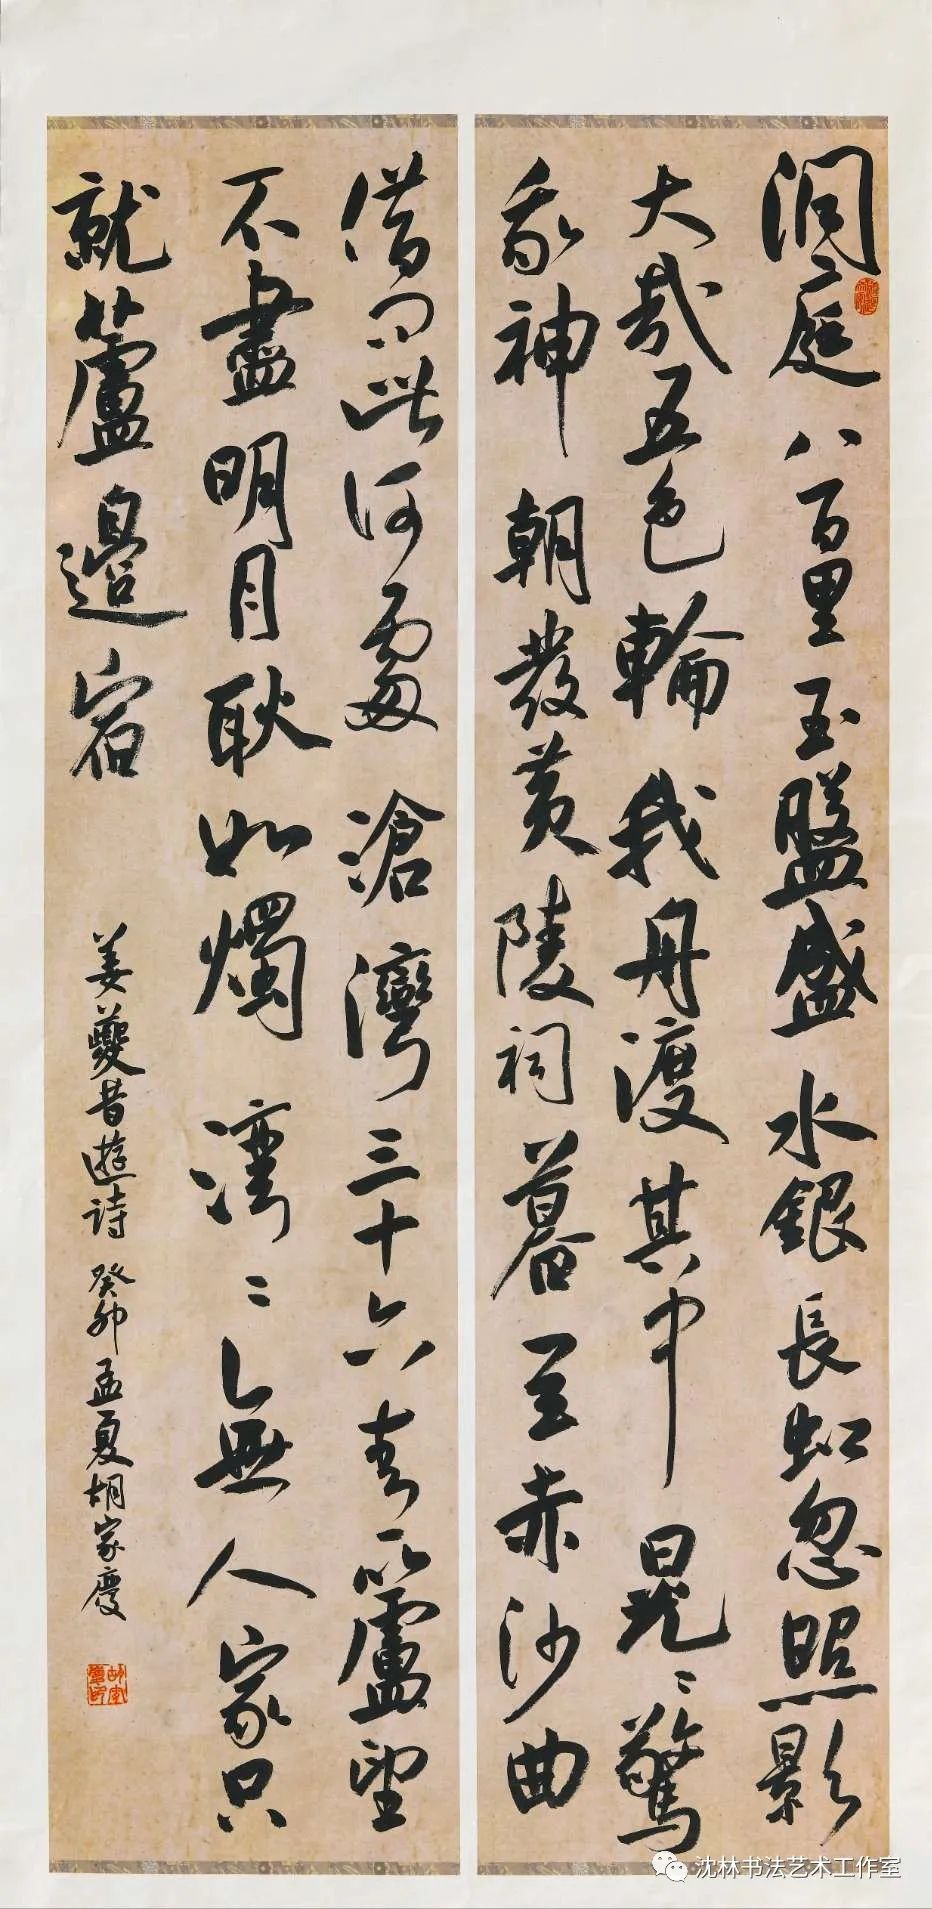 洞庭八百里玉盤盛水銀長虹忽照影
大哉五色輪我舟渡其中晃〻驚
我神朝發黃陵祠暮至赤沙曲
借問此何處滄灣三十六青蘆望
不盡明月耿如燭湾〻無人家只
就蘆邊宿
姜夔昔遊詩 癸卯孟夏胡家慶
沈林书法艺术工作室